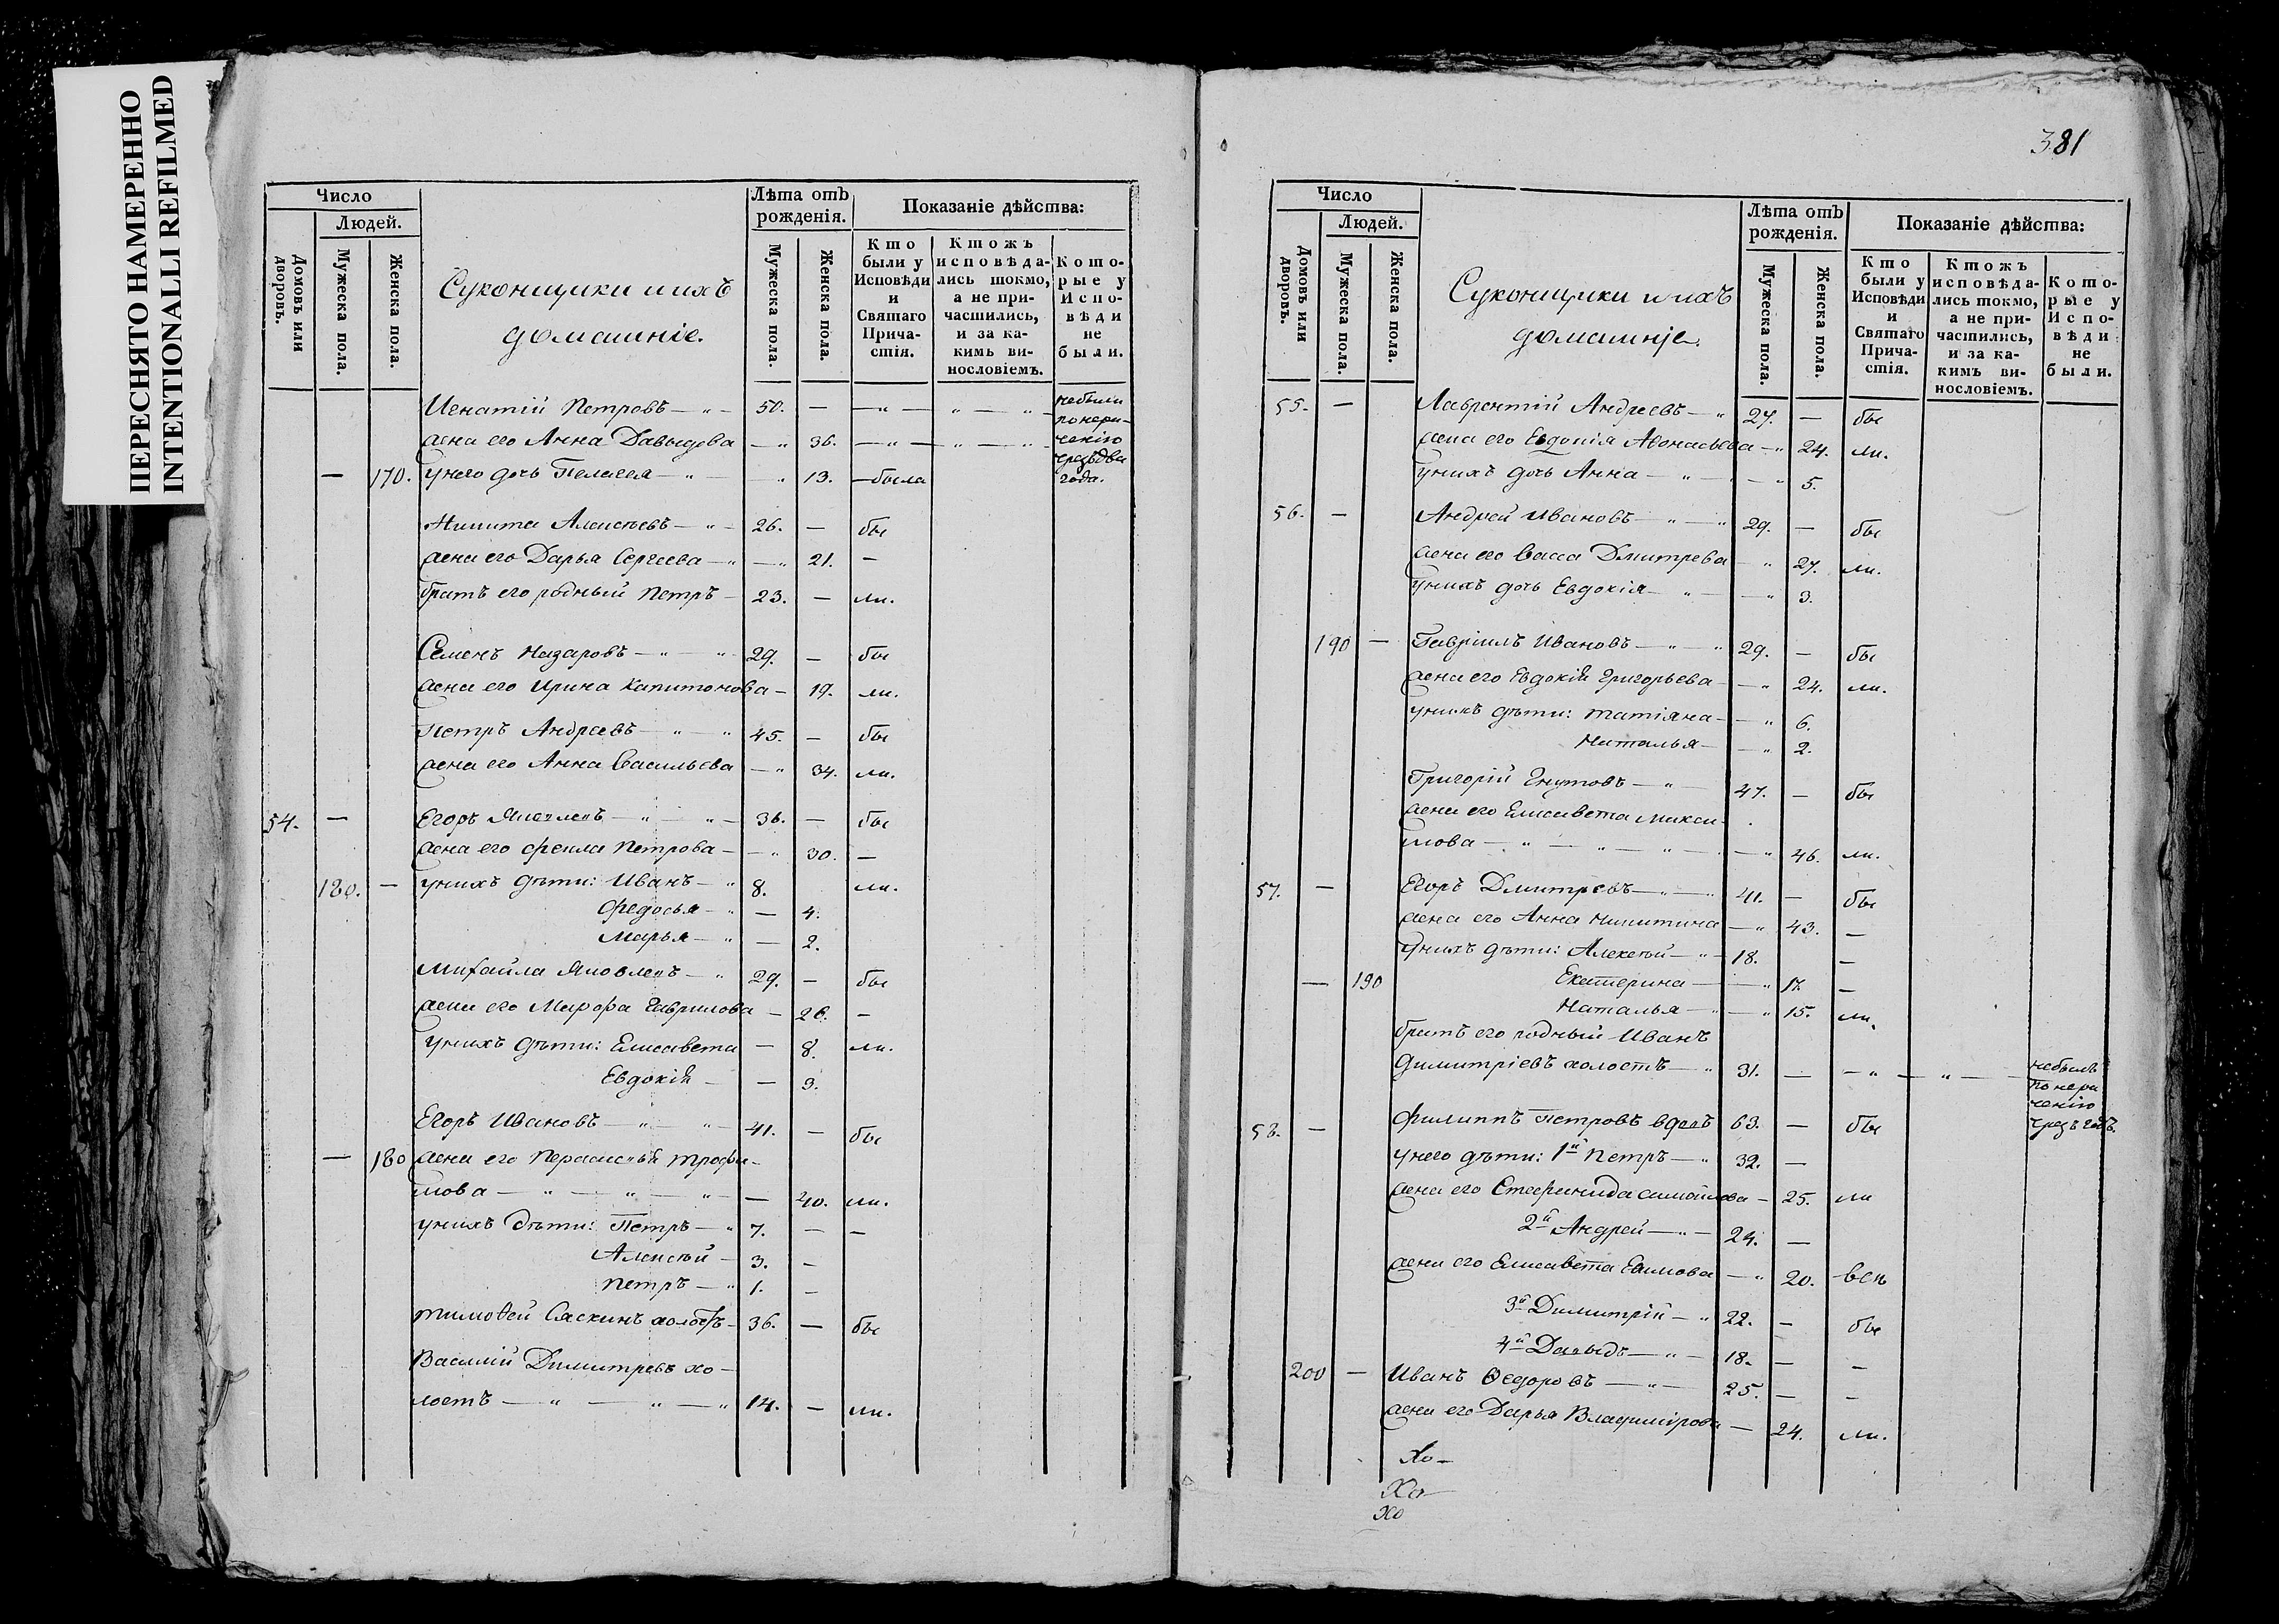 ПЕРЕСНЯТО НАМЕРЕННО
INTENTIONALLI REFILMED
Число
Людей.
Домовъ или дворовъ.
Мужеска пола.
Женска пола.
Суконщики и ихъ
домашніе.
Лѣта отъ рожденія.
Мужеска пола.
Женска пола.
Показаніе дѣйства:
Кто были у Исповѣди и Святаго Причастія.
Ктожъ исповѣдались токмо, а не причастились, и за какимъ винословіемъ.
Которые у Исповѣди не были.
Игнатій Петровъ — 50. — небыли
понера-
жена его Анна Давыдова — 36. ченію
чрезъ два
— 170. унего дочь Пелагея — 13. — была года.
Никита Алексѣевъ — 26. — бы
жена его Дарья Сергеева — 21. —
братъ его родный Петръ — 23. — ли.
Семенъ Назаровъ — 29. — бы
жена его Ирина Капитонова — 19. ли.
Петръ Андреевъ — 45. — бы
жена его Анна Васильева — 34. ли.
54. — Егоръ Яковлевъ — 36. — бы
жена его Фекла Петрова — 30. —
180. — унихъ дѣти: Иванъ — 8. ли.
Федосья — 4.
Марья — 2.
Михайла Яковлевъ — 29. — бы
жена его Марфа Гаврилова — 26. —
унихъ дѣти: Елисавета — 8. ли.
Евдокія — 3.
Егоръ Ивановъ — 41. — бы
— 180 жена его Параскевія Трофи-
мова — 40. ли.
унихъ дѣти: Петръ — 7. — —
Алексѣй — 3. —
Петръ — 1. —
Тимоѳей холостъ — 36. — бы
Василій Димитревъ хо-
лостъ — 14. — ли.
381
Число
Людей.
Домовъ или дворовъ.
Мужеска пола.
Женска пола.
Суконщики и ихъ
домашніе.
Лѣта отъ рожденія.
Мужеска пола.
Женска пола.
Показаніе дѣйства:
Кто были у Исповѣди и Святаго Причастія.
Ктожъ исповѣдались токмо, а не причастились, и за какимъ винословіемъ.
Которые у Исповѣди не были.
55. — Лаврентій Андреевъ — 27. — бы
жена его Евдокія Аѳонасьева — 24. ли.
унихъ дочь Анна — 5.
56. — Андрей Ивановъ — 29. — бы
жена его Васса Дмитрева — 27. ли.
унихъ дочь Евдокія — 3.
190 — Гавріилъ Ивановъ — 29. — бы
жена его Евдокія Григорьева — 24. ли.
унихъ дѣти: Татіяна — 6.
Наталья — 2.
Григорій — 47. — бы
жена его Елисавета Макси-
мова — 46. ли.
57. — Егоръ Дмитревъ — 41. — бы
жена его Анна Никитина — 43. —
унихъ дѣти: Алексѣй — 18. —
— 190 Екатерина — 17. —
Наталья — 15. ли.
братъ его родный Иванъ
Димитріевъ холостъ — 31. — небылъ
понера
ченію
58. — Филиппъ Петровъ вдовъ 63. — бы чрезъ годъ.
унего дѣти: 1й Петръ — 32. —
жена его Стефанида — 25. ли
2й Андрей — 24. —
жена его Елисавета — 20. —
3й Димитрій — 22. — бы
4й Давыдъ — 18. — —
200 — Иванъ Ѳедоровъ — 25. — —
жена его Дарья Владимірова — 24. ли.
Хо —
Хо
Хо